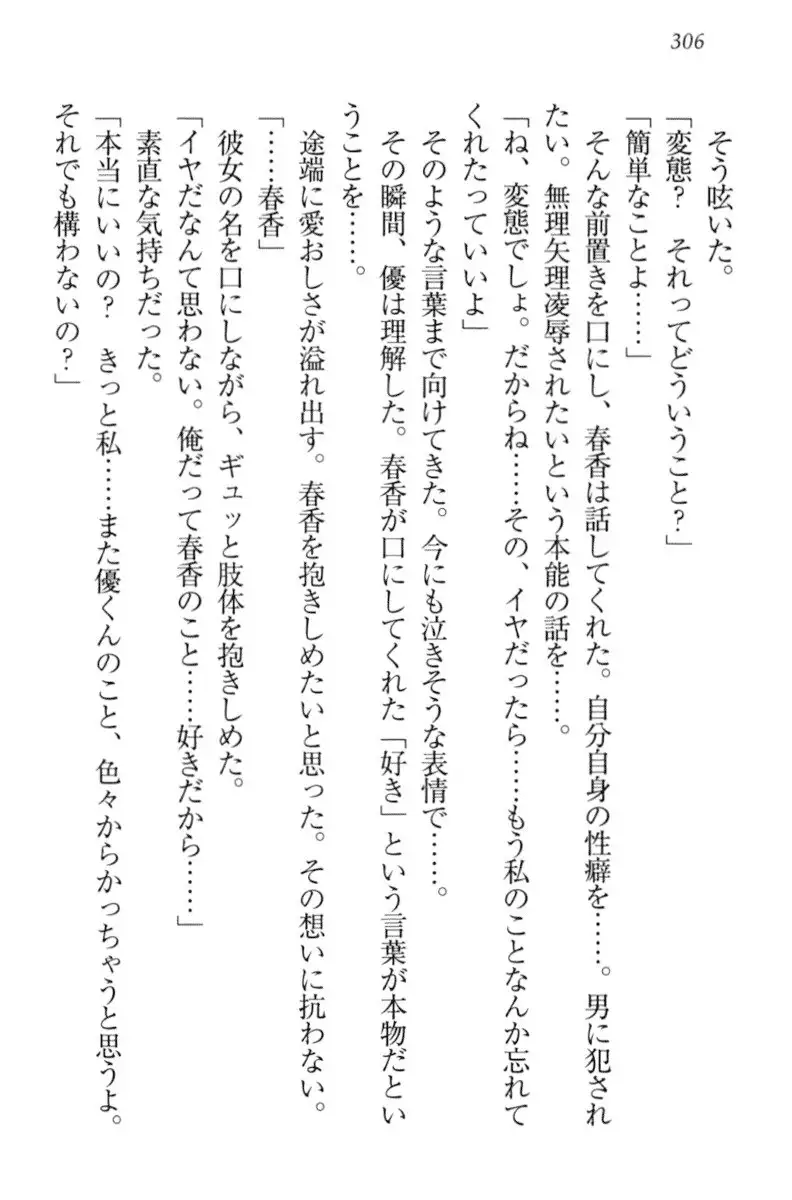 306
そう呟いた。
「変態?　それってどういうこと?」
「簡単なことよ……」
そんな前置きを口にし、春香は話してくれた。自分自身の性癖を……。男に犯され
たい。無理矢理凌辱されたいという本能の話を……。
「ね、変態でしょ。だからね……その、イヤだったら……もう私のことなんか忘れて
くれたっていいよ」
そのような言葉まで向けてきた。今にも泣きそうな表情で……。
その瞬間、優は理解した。春香が口にしてくれた「好き」という言葉が本物だとい
うことを……。
途端に愛おしさが溢れ出す。春香を抱きしめたいと思った。その想いに抗わない。
「……春香」
彼女の名を口にしながら、ギュッと肢体を抱きしめた。
「イヤだなんて思わない。俺だって春香のこと……好きだから……」
素直な気持ちだった。
「本当にいいの?　きっと私……また優くんのこと、色々からかっちゃうと思うよ。
それでも構わないの?」